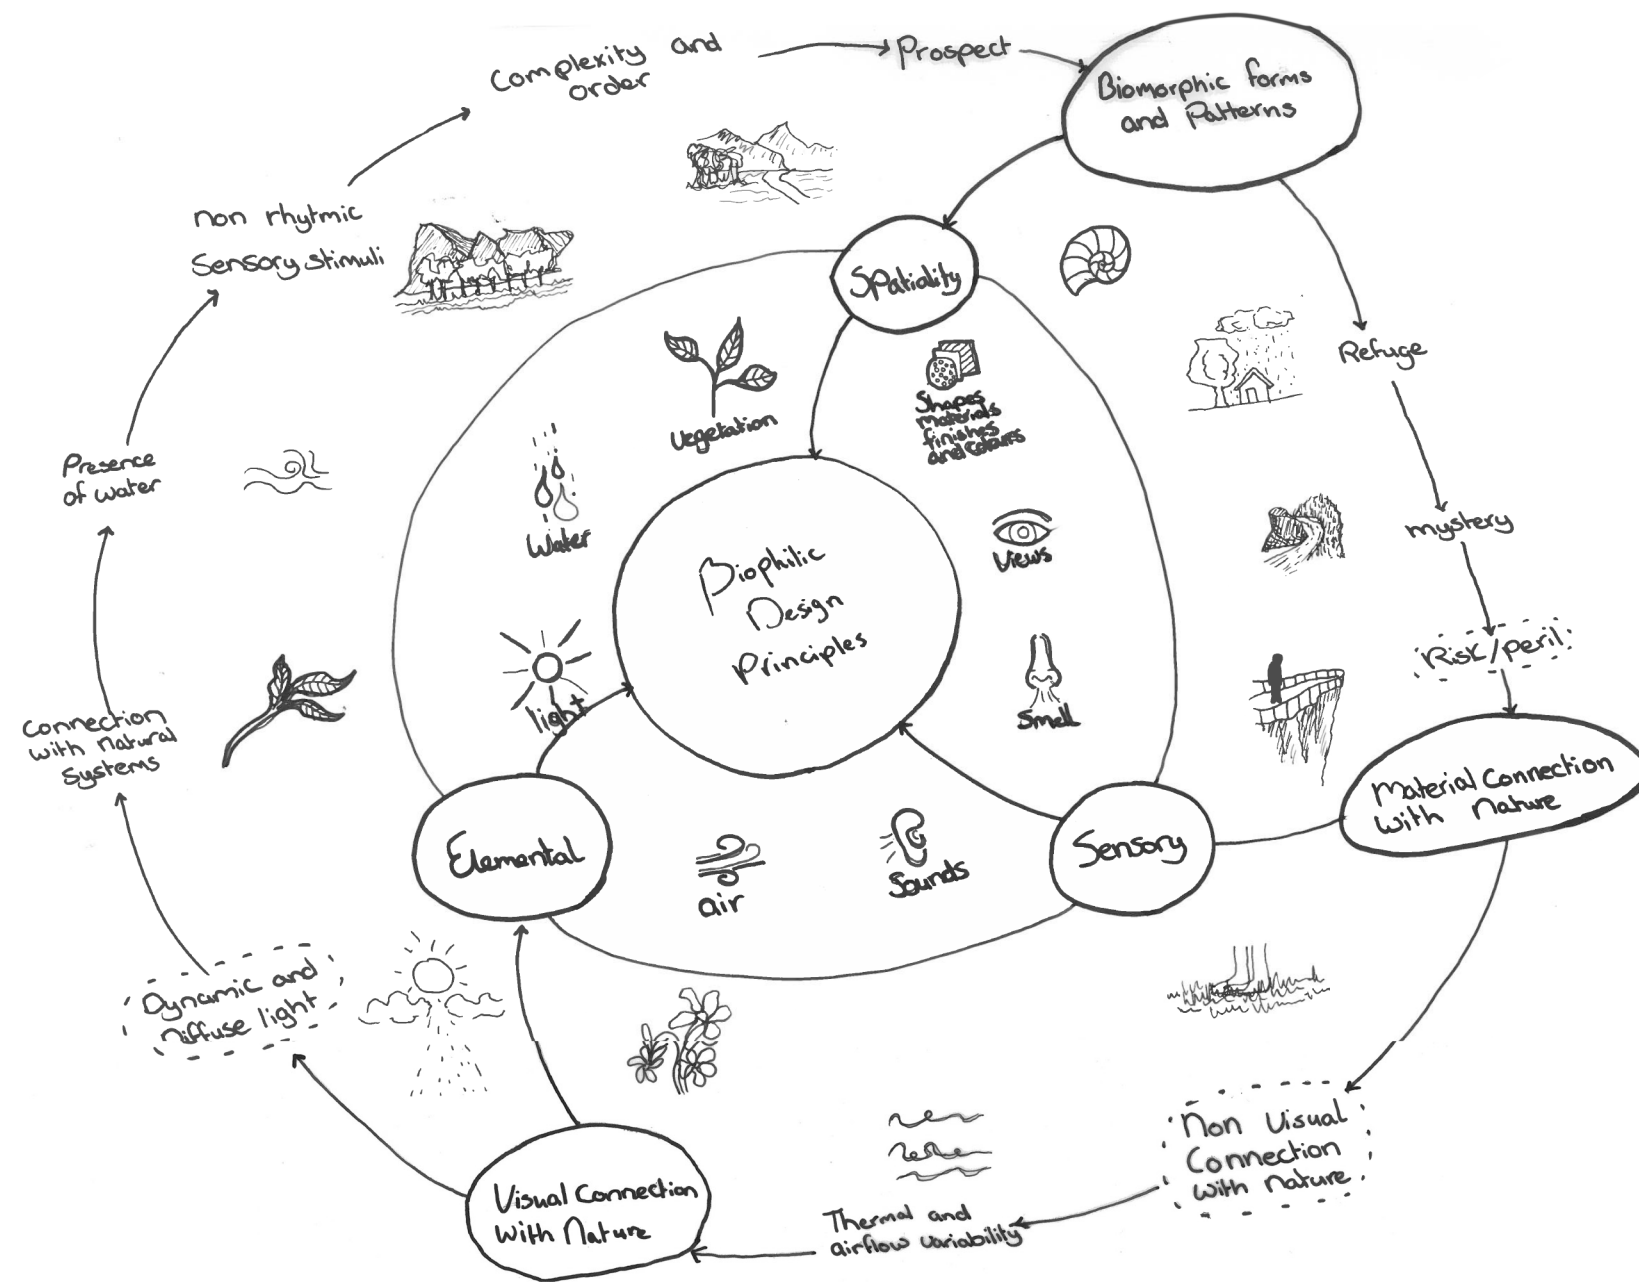 Complexity and
order
Prospect
Biomorphic forms
and Patterns
non rhytmic
Sensory stimuli
Spatiality
Refuge
Vegetation
Shapes
materials
finishes
and colours
Presence
of water
Water
Views
mystery
Biophilic
Design
Principles
Risk/peril
light
Smell
Connection
with natural
Systems
Material Connection
with nature
Elemental
air
Sounds
Sensory
Dynamic and
Diffuse light
Non Visual
Connection
with nature
Visual Connection
With Nature
Thermal and
airflow variability